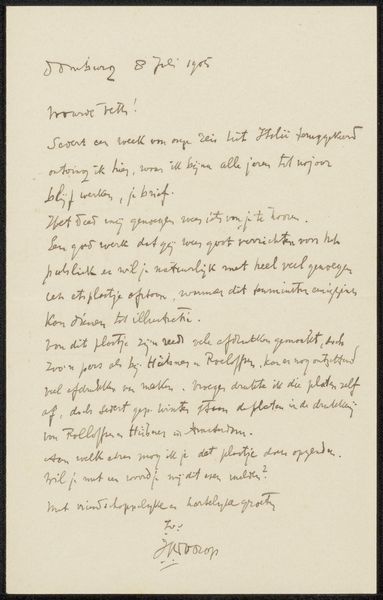 Domburg 8 Juli 1905
Waarde Veth!
Sedert een week van onze reis uit Italië teruggekeerd
ontving ik hier, waar ik bijna alle jaren tot najaar
blijf werken, je brief.
Het deed mij genoegen weer iets van je te hooren.
Een goed werk dat gij weer gaat verrichten voor het
publiek en wil je natuurlijk met heel veel genoegen
een etsplaatje afstaan, wanneer dit
kan dienen tot illustratie.
Van dit plaatje zijn reeds vele afdrukken gemaakt, doch
zoo'n pers als bij Hübner en Roeloffzen, kan er nog ontzettend
veel afdrukken van maken. Vroeger drukte ik die platen zelf
af, doch sedert gep. winter staan de platen in de drukkerij
van Roeloffzen Hübner in Amsterdam.
Aan welk adres mag ik je dat plaatje doen opzenden.
Wil je met een woordje mij dit even melden?
Met vriendschappelijke en hartelijke groeten
tv.
JThToorop